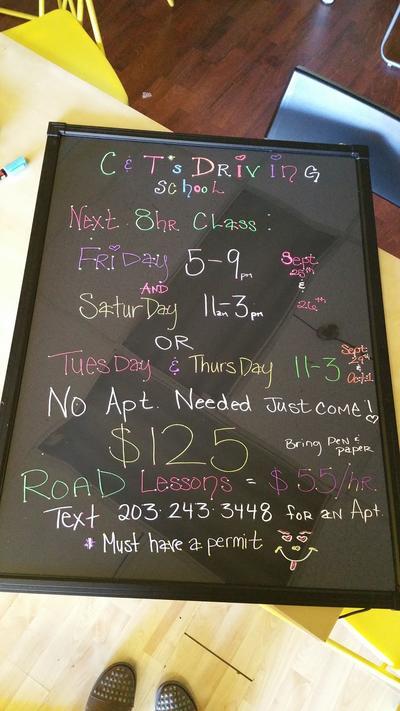 C & T's Driving
School
Next 8hr Class:
Friday 5-9pm Sept 25th
AND &
Saturday 11am-3pm 26th
OR
Tuesday & Thursday 11-3 Sept 29th & Oct 1
No Apt. Needed Just come!
$125 Bring Pen & paper
ROAD Lessons = $55/hr.
Text 203·243·3448 for an Apt.
* Must have a permit